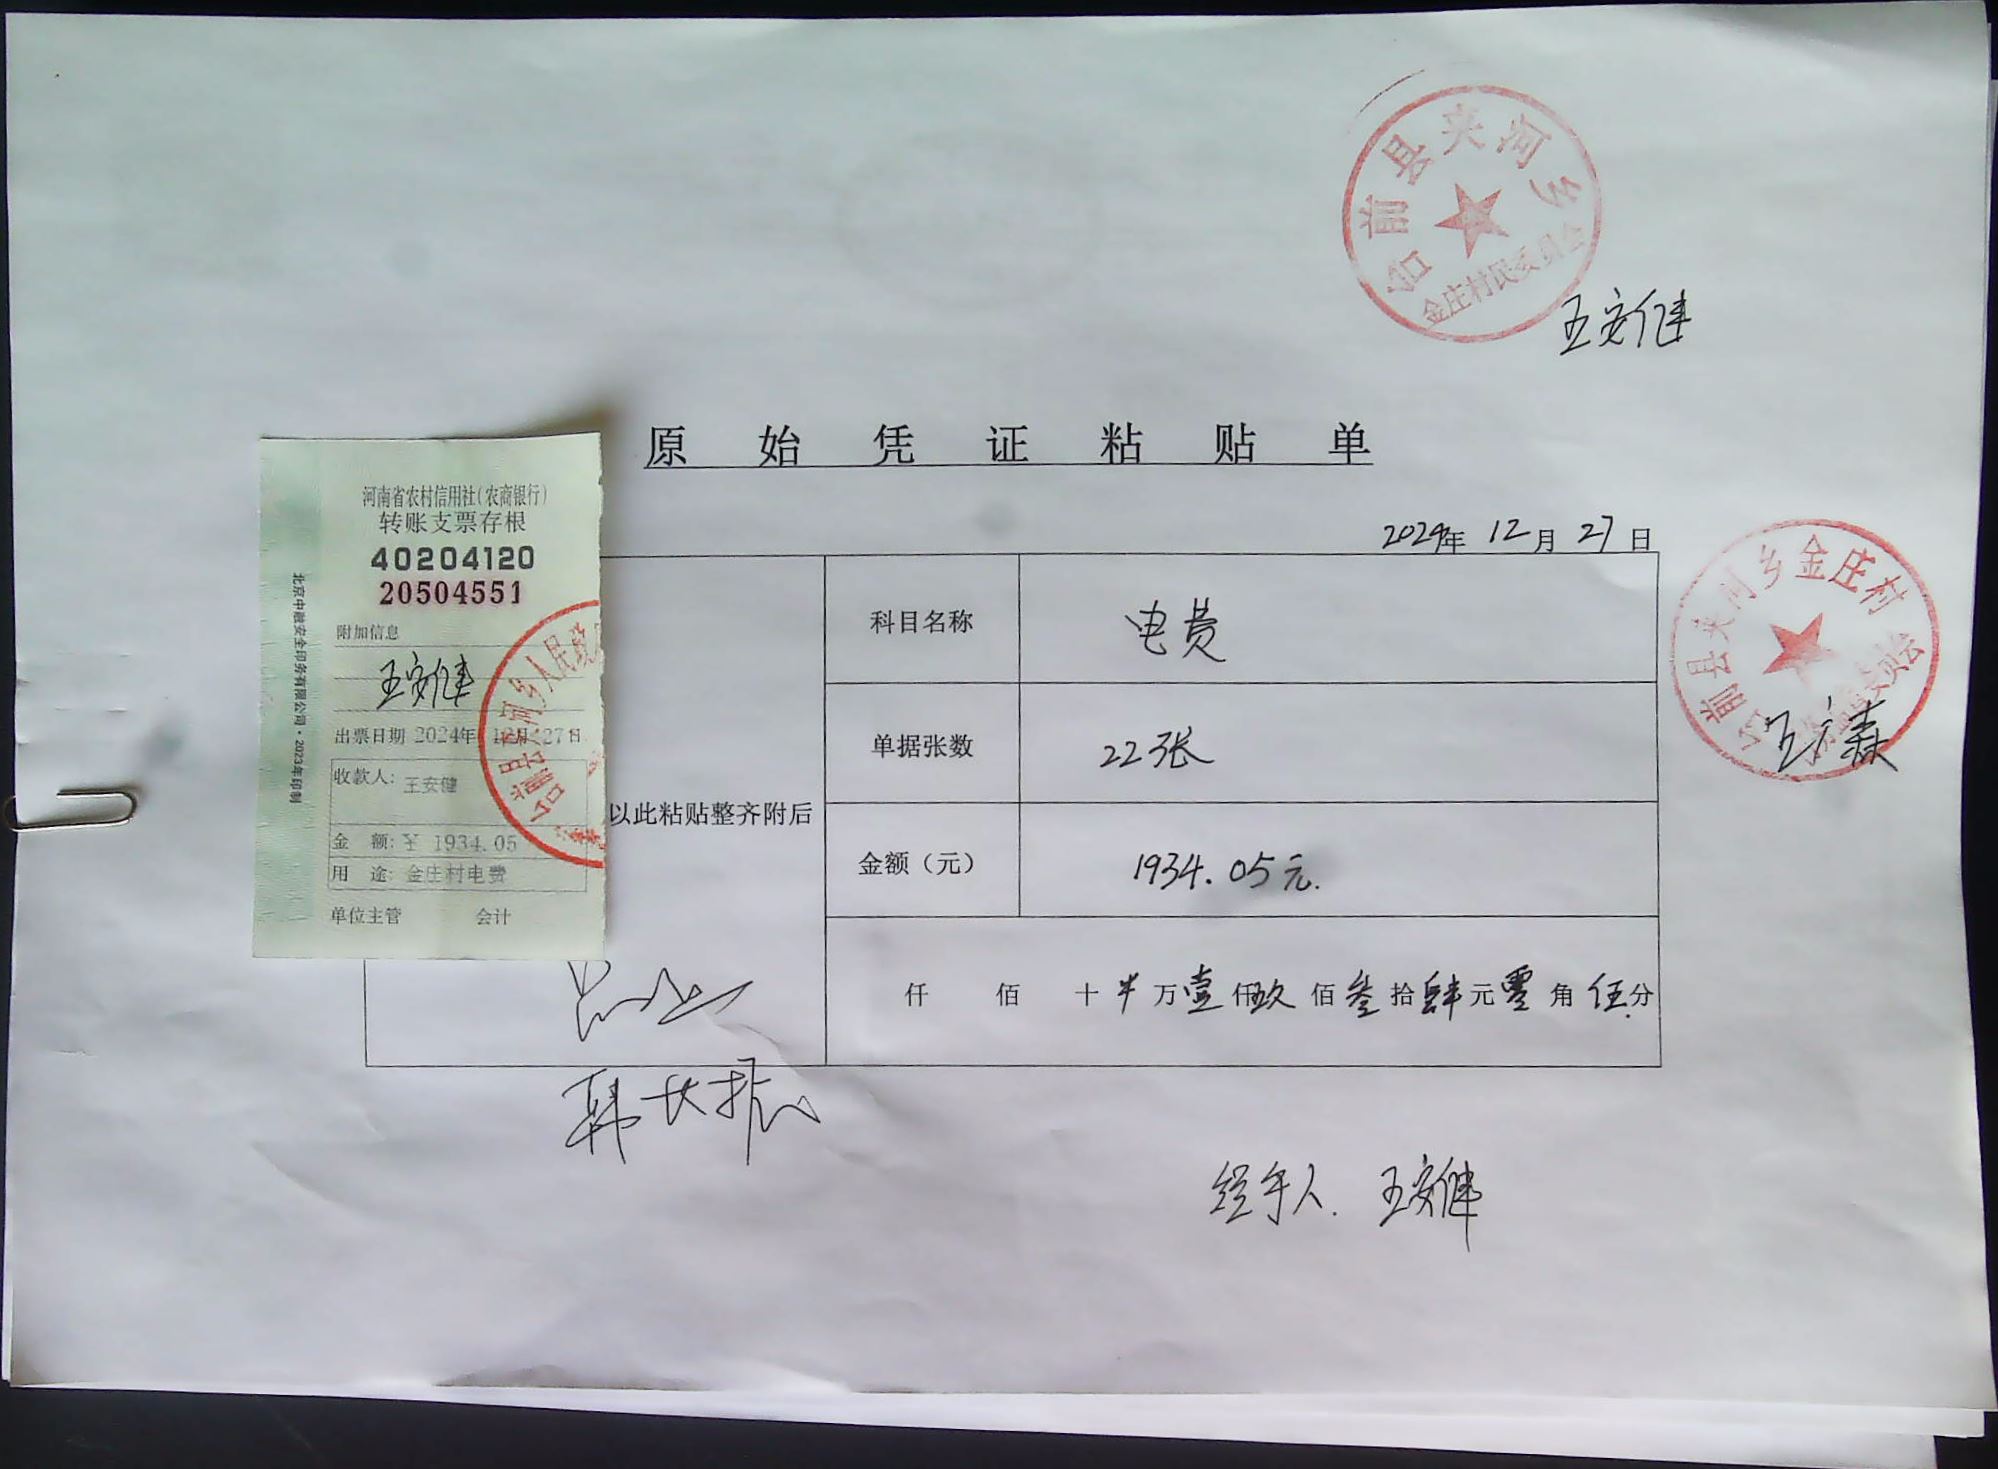 台前县夹河乡
金庄村民委员会
王安健
原始凭证粘贴单
2024年 12月 27日
河南省农村信用社(农商银行)
转账支票存根
40204120
20504551
附加信息
王安健
出票日期 2024年 12月 27日
收款人: 王安健
金 额: ¥ 1934.05
用 途: 金庄村电费
单位主管 会计
北京中融安全印务有限公司·2023年印制
台前县夹河乡人民政
以此粘贴整齐附后
科目名称 电费
单据张数 22张
金额（元） 1934.05元.
仟 佰 十 万壹仟玖佰叁拾肆元零角伍分
台前县夹河乡金庄村
委员会
韩长振
经手人. 王安健